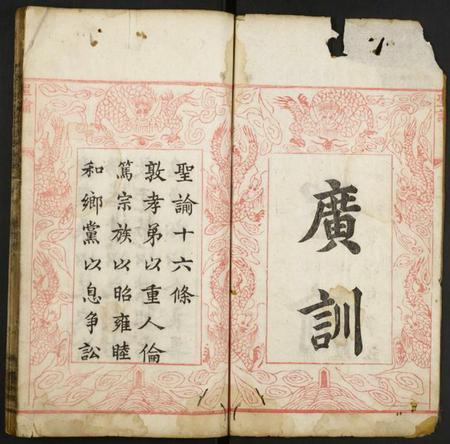 廣訓
聖諭十六條
敦孝弟以重人倫
篤宗族以昭雍睦
和鄉黨以息争訟